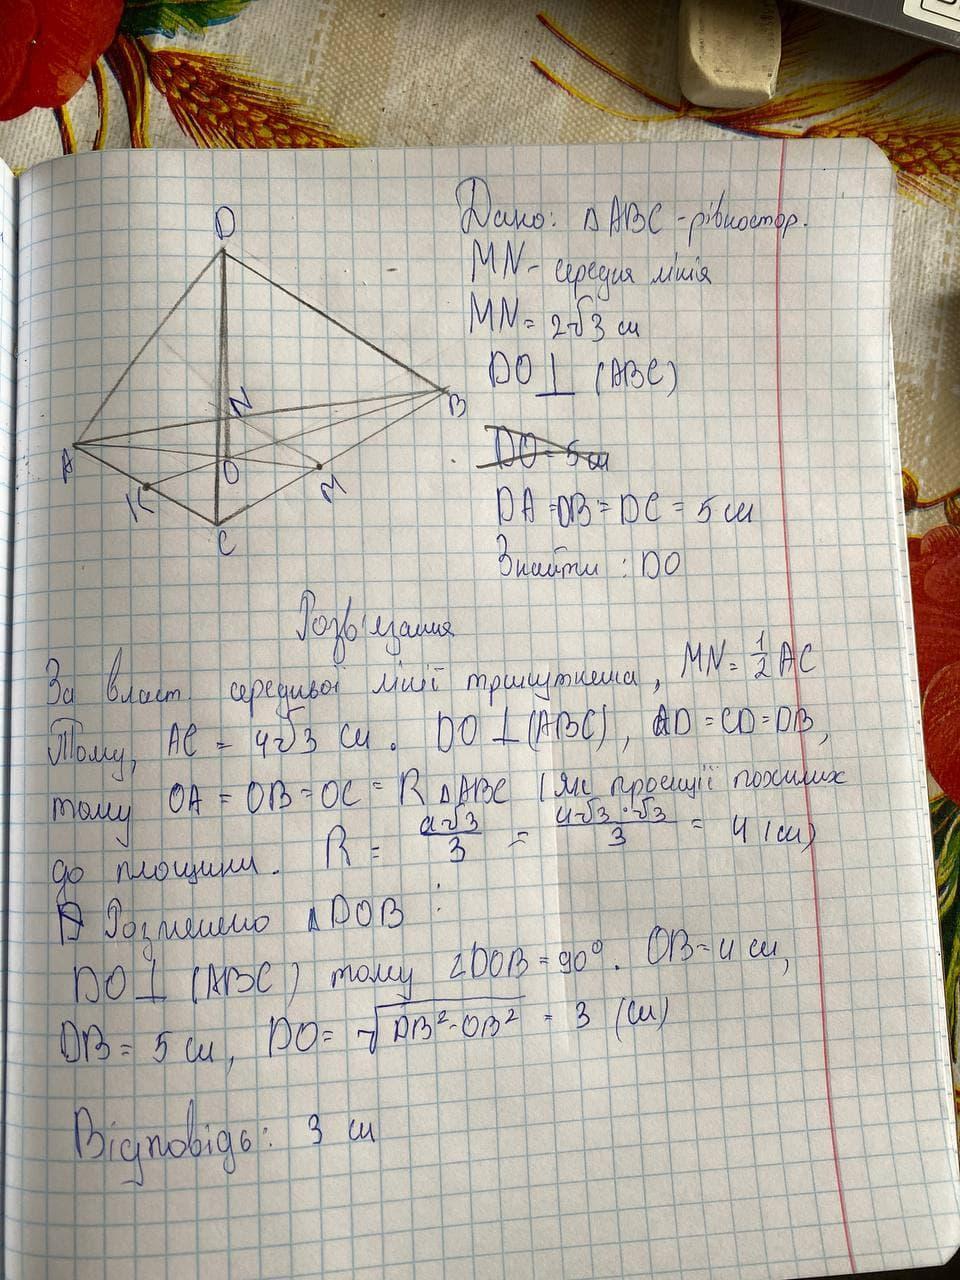 D
A
K
N
O
M
B
C
Дано: △ABC - рівностор.
MN - середня лінія
MN = 2√3 см
DO ⊥ (ABC)
DO = 5 см
DA = DB = DC = 5 см
Знайти : DO
Розв'язання
За власт. середньої лінії трикутника, MN = 1/2 AC
Тому, AC = 4√3 см. DO ⊥ (ABC), AD = CD = DB,
тому OA = OB = OC = R △ABC (як проекції похилих
до площини. R = a√3/3 = 4√3·√3/3 = 4 (см)
Розглянемо △DOB :
DO ⊥ (ABC) тому ∠DOB = 90°. OB = 4 см,
DB = 5 см, DO = √(DB² - OB²) = 3 (см)
Відповідь: 3 см